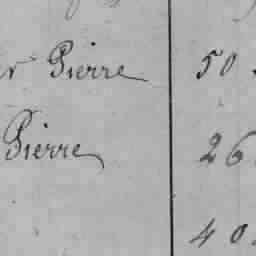 Pierre 50
Pierre 26
40